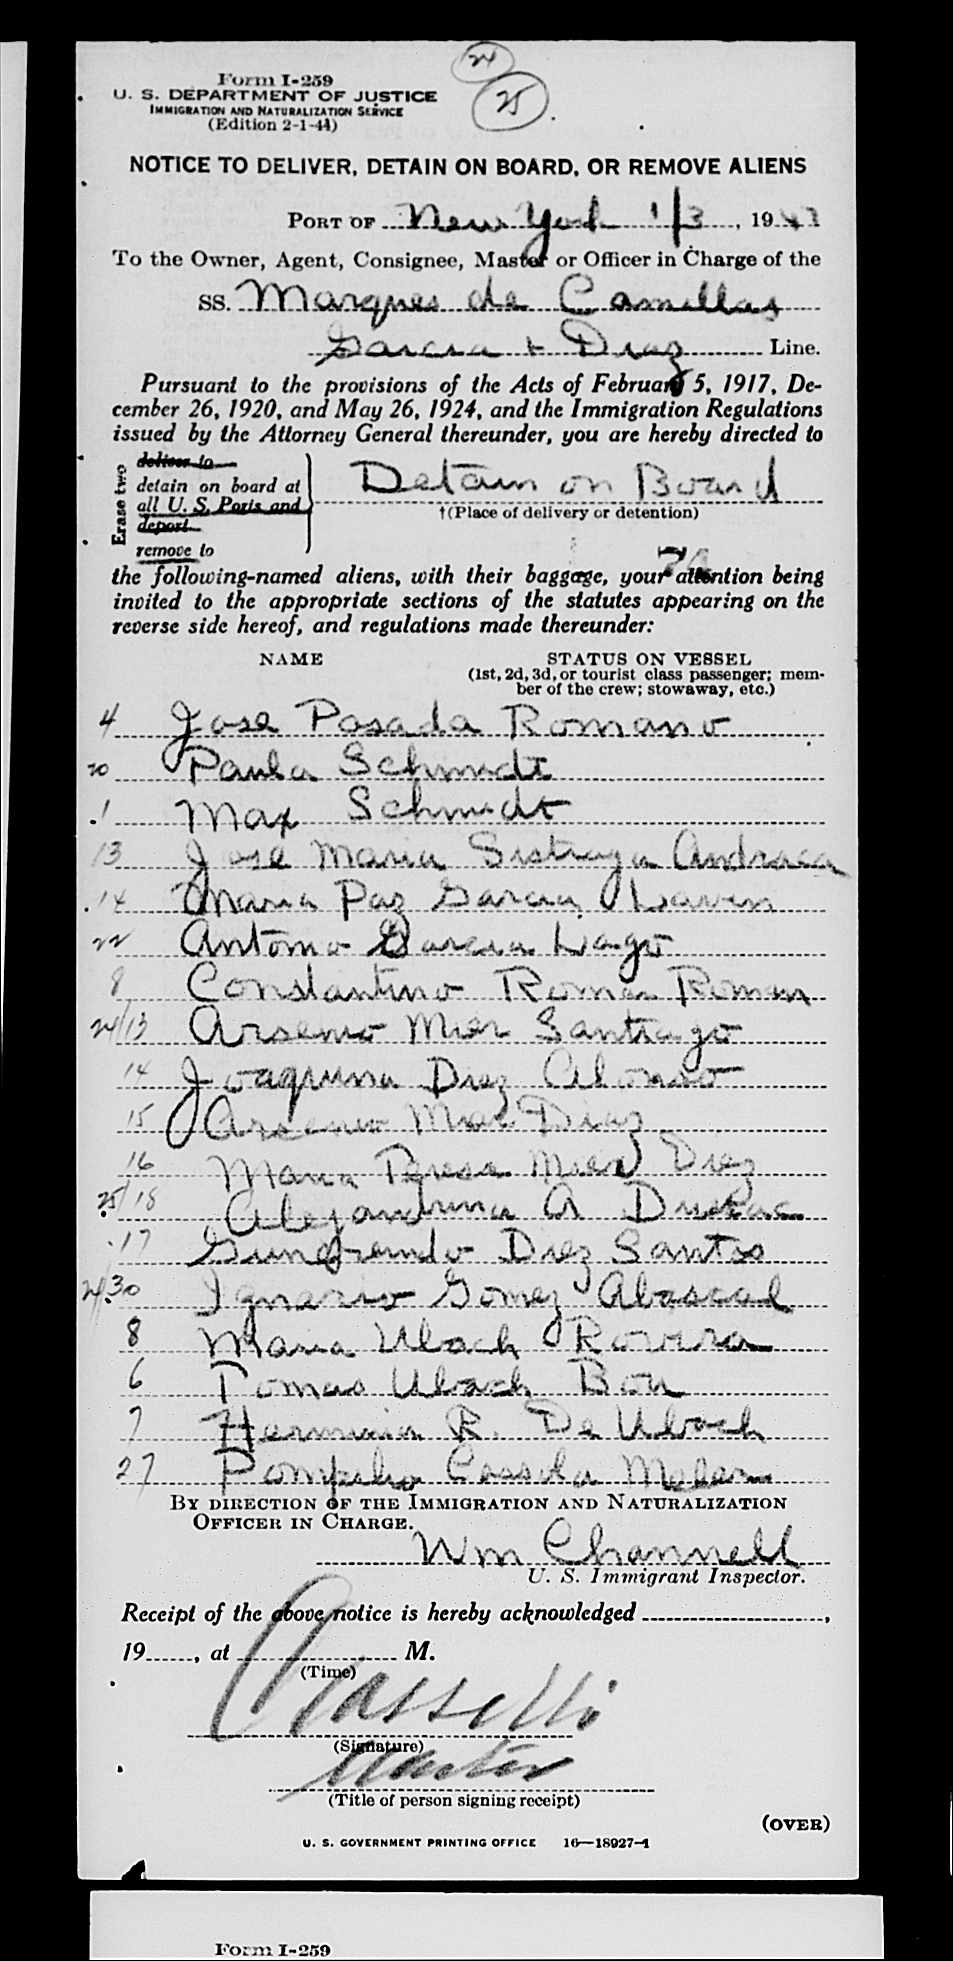 24
25
Form I-259
U. S. DEPARTMENT OF JUSTICE
IMMIGRATION AND NATURALIZATION SERVICE
(Edition 2-1-44)
NOTICE TO DELIVER, DETAIN ON BOARD, OR REMOVE ALIENS
PORT OF New York 1/3, 1947
To the Owner, Agent, Consignee, Master or Officer in Charge of the
SS. Marques de Comillas
Garcia + Diaz Line.
Pursuant to the provisions of the Acts of February 5, 1917, De-
cember 26, 1920, and May 26, 1924, and the Immigration Regulations
issued by the Attorney General thereunder, you are hereby directed to
Erase two
deliver to
detain on board at
all U. S. Ports and
deport
remove to
Detain on Board
†(Place of delivery or detention)
the following-named aliens, with their baggage, your attention being
invited to the appropriate sections of the statutes appearing on the
reverse side hereof, and regulations made thereunder:
NAME STATUS ON VESSEL
(1st, 2d, 3d, or tourist class passenger; mem-
ber of the crew; stowaway, etc.)
4 Jose Posada Romano
20 Paula Schmidt
1 Max Schmidt
13 Jose Maria Andraca
14 Maria Paz Garcia Lavin
22 Antonio Garcia Lago
8 Constantino Roman Roman
24/13 Arsenio Mier Santiago
14 Joaquina Diez Alonso
15 Arsenio Mier Diaz
16 Maria Teresa Mier Diez
25/18 Alejandrina A
17 Gumersindo Diez Santos
24/30 Ignacio Gomez Abascal
8 Maria Ubach Rovira
6 Tomas Ubach Bou
7 Herminia R. De Ubach
27 Pompilio
BY DIRECTION OF THE IMMIGRATION AND NATURALIZATION
OFFICER IN CHARGE.
Wm Channell
U. S. Immigrant Inspector.
Receipt of the above notice is hereby acknowledged ,
19 , at M.
(Time)
(Signature)
Master
(Title of person signing receipt)
(OVER)
U. S. GOVERNMENT PRINTING OFFICE 16—18927-1
Form I-259